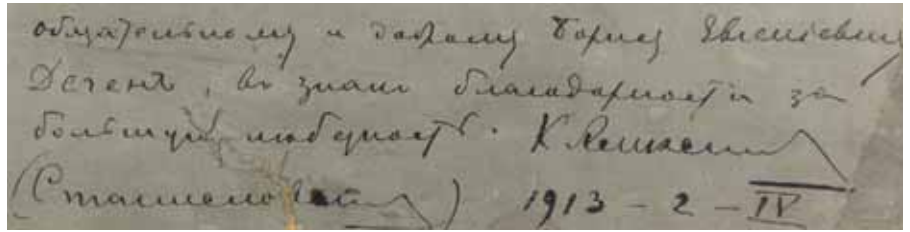 обязательному и доброму Борису Евгеніевичу
въ знакъ благодарности за
большую любезность. К Алексѣев
(Станиславскій) 1913 – 2 – IV